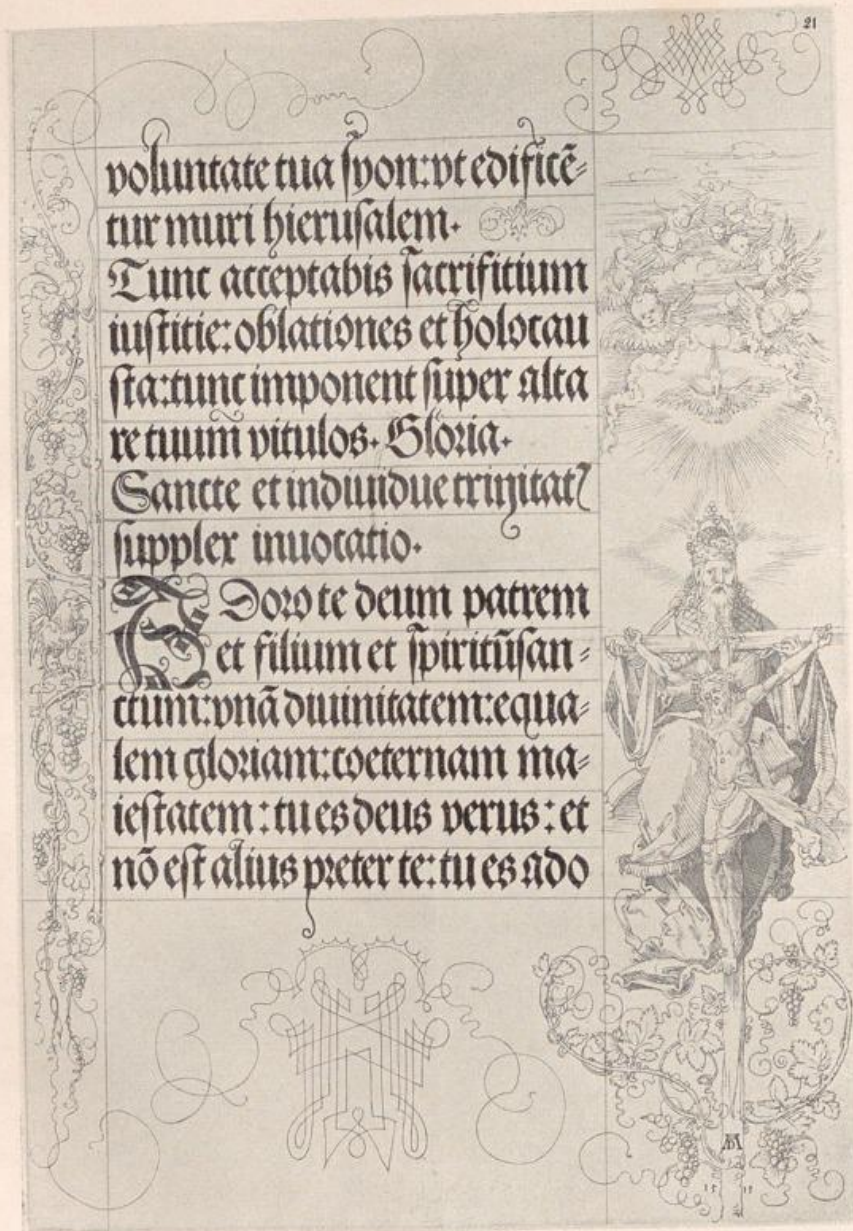 21
voluntate tua syon: vt edificē=
tur muri hierusalem.
Tunc acceptabis sacrifitium
iustitie: oblationes et holocau
sta: tunc imponent super alta
re tuum vitulos. Gloria.
Sancte et indiuidue trinitatꝫ
supplex inuocatio.
ADoro te deum patrem
et filium et spiritūsan=
ctum: vnā diuinitatem: equa=
lem gloriam: coeternam ma=
iestatem: tu es deus verus: et
nō est alius preter te: tu es ado